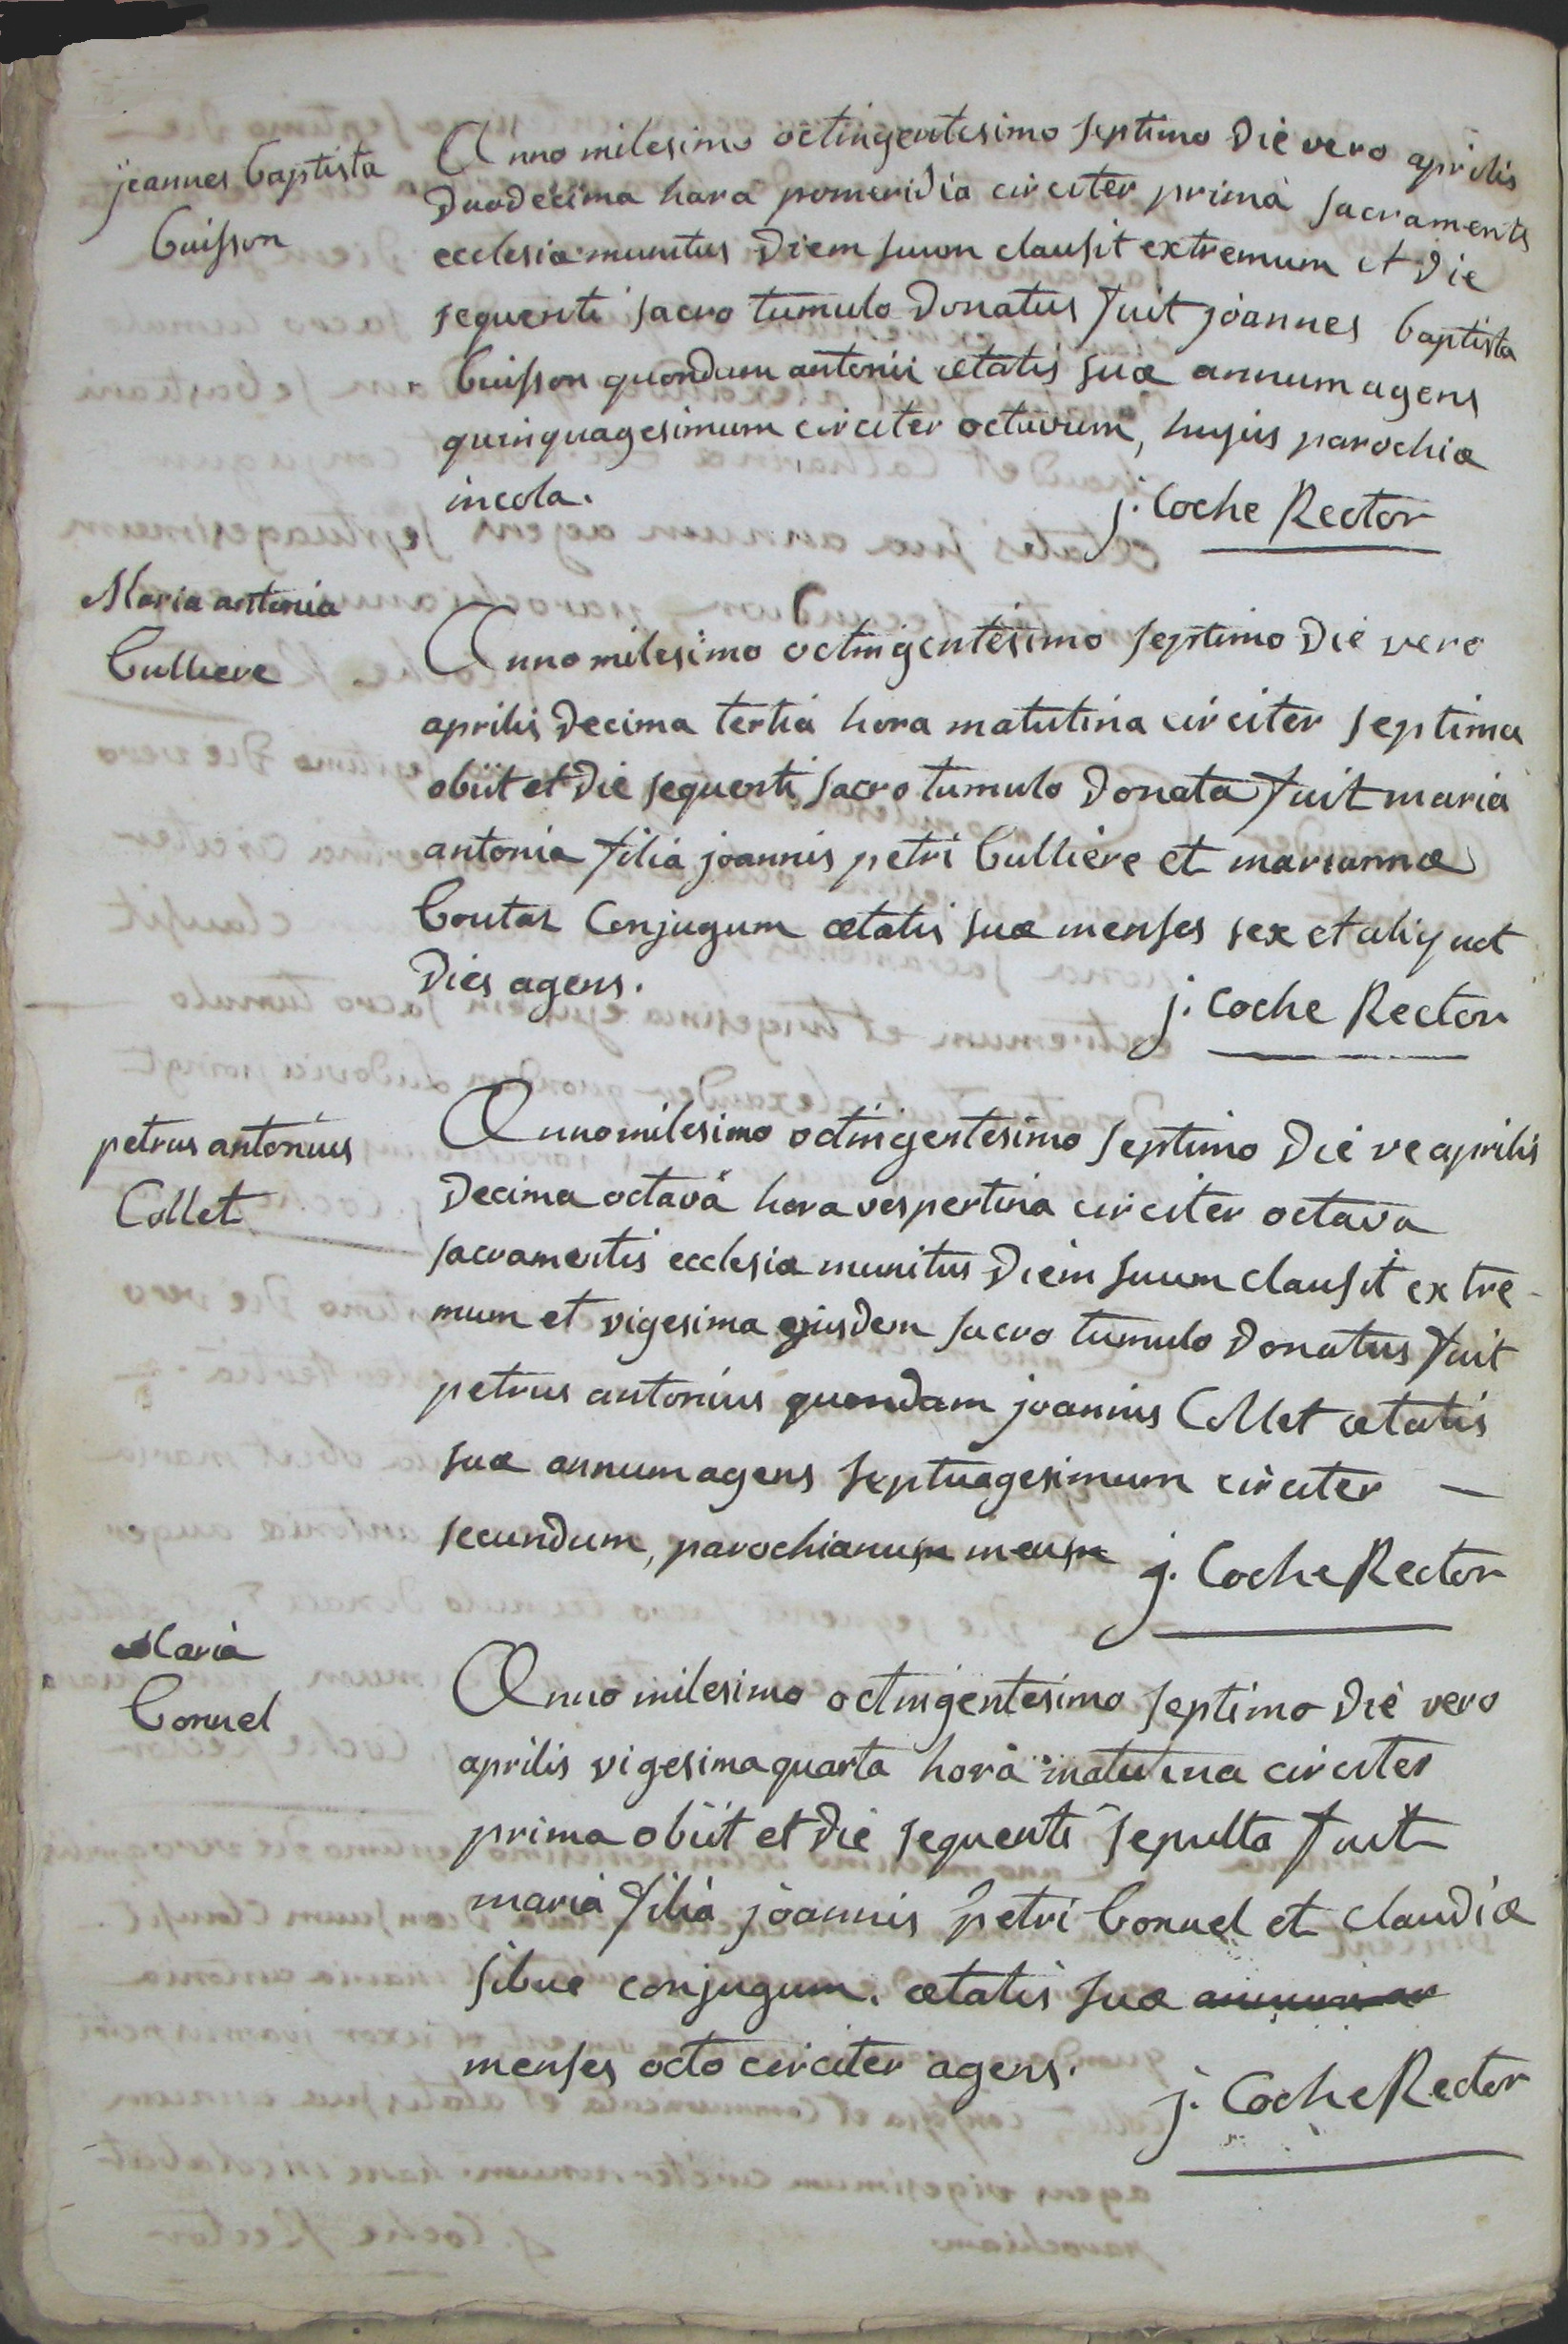 jeannes baptista
buisson
Anno milesimo octingentesimo septimo die vero aprilis
duodecima hara pomeridia circiter prima sacramentis
ecclesiæ munitus diem suum clausit extremum et die
sequenti sacro tumulo donatus fuit joannes baptista
buisson quondam antonii ætatis suæ annum agens
quinquagesimum circiter octavum, hujus parochiæ
incola.
j. Coche Rector
Maria antonia
bulliere
Anno milesimo octingentesimo septimo die vero
aprilis decima tertia hora matutina circiter septima
obiit et die sequenti sacro tumulo donata fuit maria
antonia filia joannis petri bulliere et mariannæ
boutas Conjugum ætatis suæ menses sex et aliquot
dies agens.
j. Coche Rector
petrus antonius
Collet
Anno milesimo octingentesimo septimo die ve aprilis
decima octava hora vespertina circiter octava
sacramentis ecclesiæ munitus diem suum clausit extre-
mum et vigesima ejusdem sacro tumulo donatus fuit
petrus antonius quondam joannis Collet ætatis
suæ annum agens septuagesimum circiter –
secundum, parochianus meus
j. Coche Rector
Maria
bonnel
Anno milesimo octingentesimo septimo die vero
aprilis vigesima quarta hora matutina circiter
prima obiit et die sequenti sepulta fuit
maria filia joannis petri bonnel et claudiæ
sibue conjugum. ætatis suæ
menses octo circiter agens.
j. Coche Rector